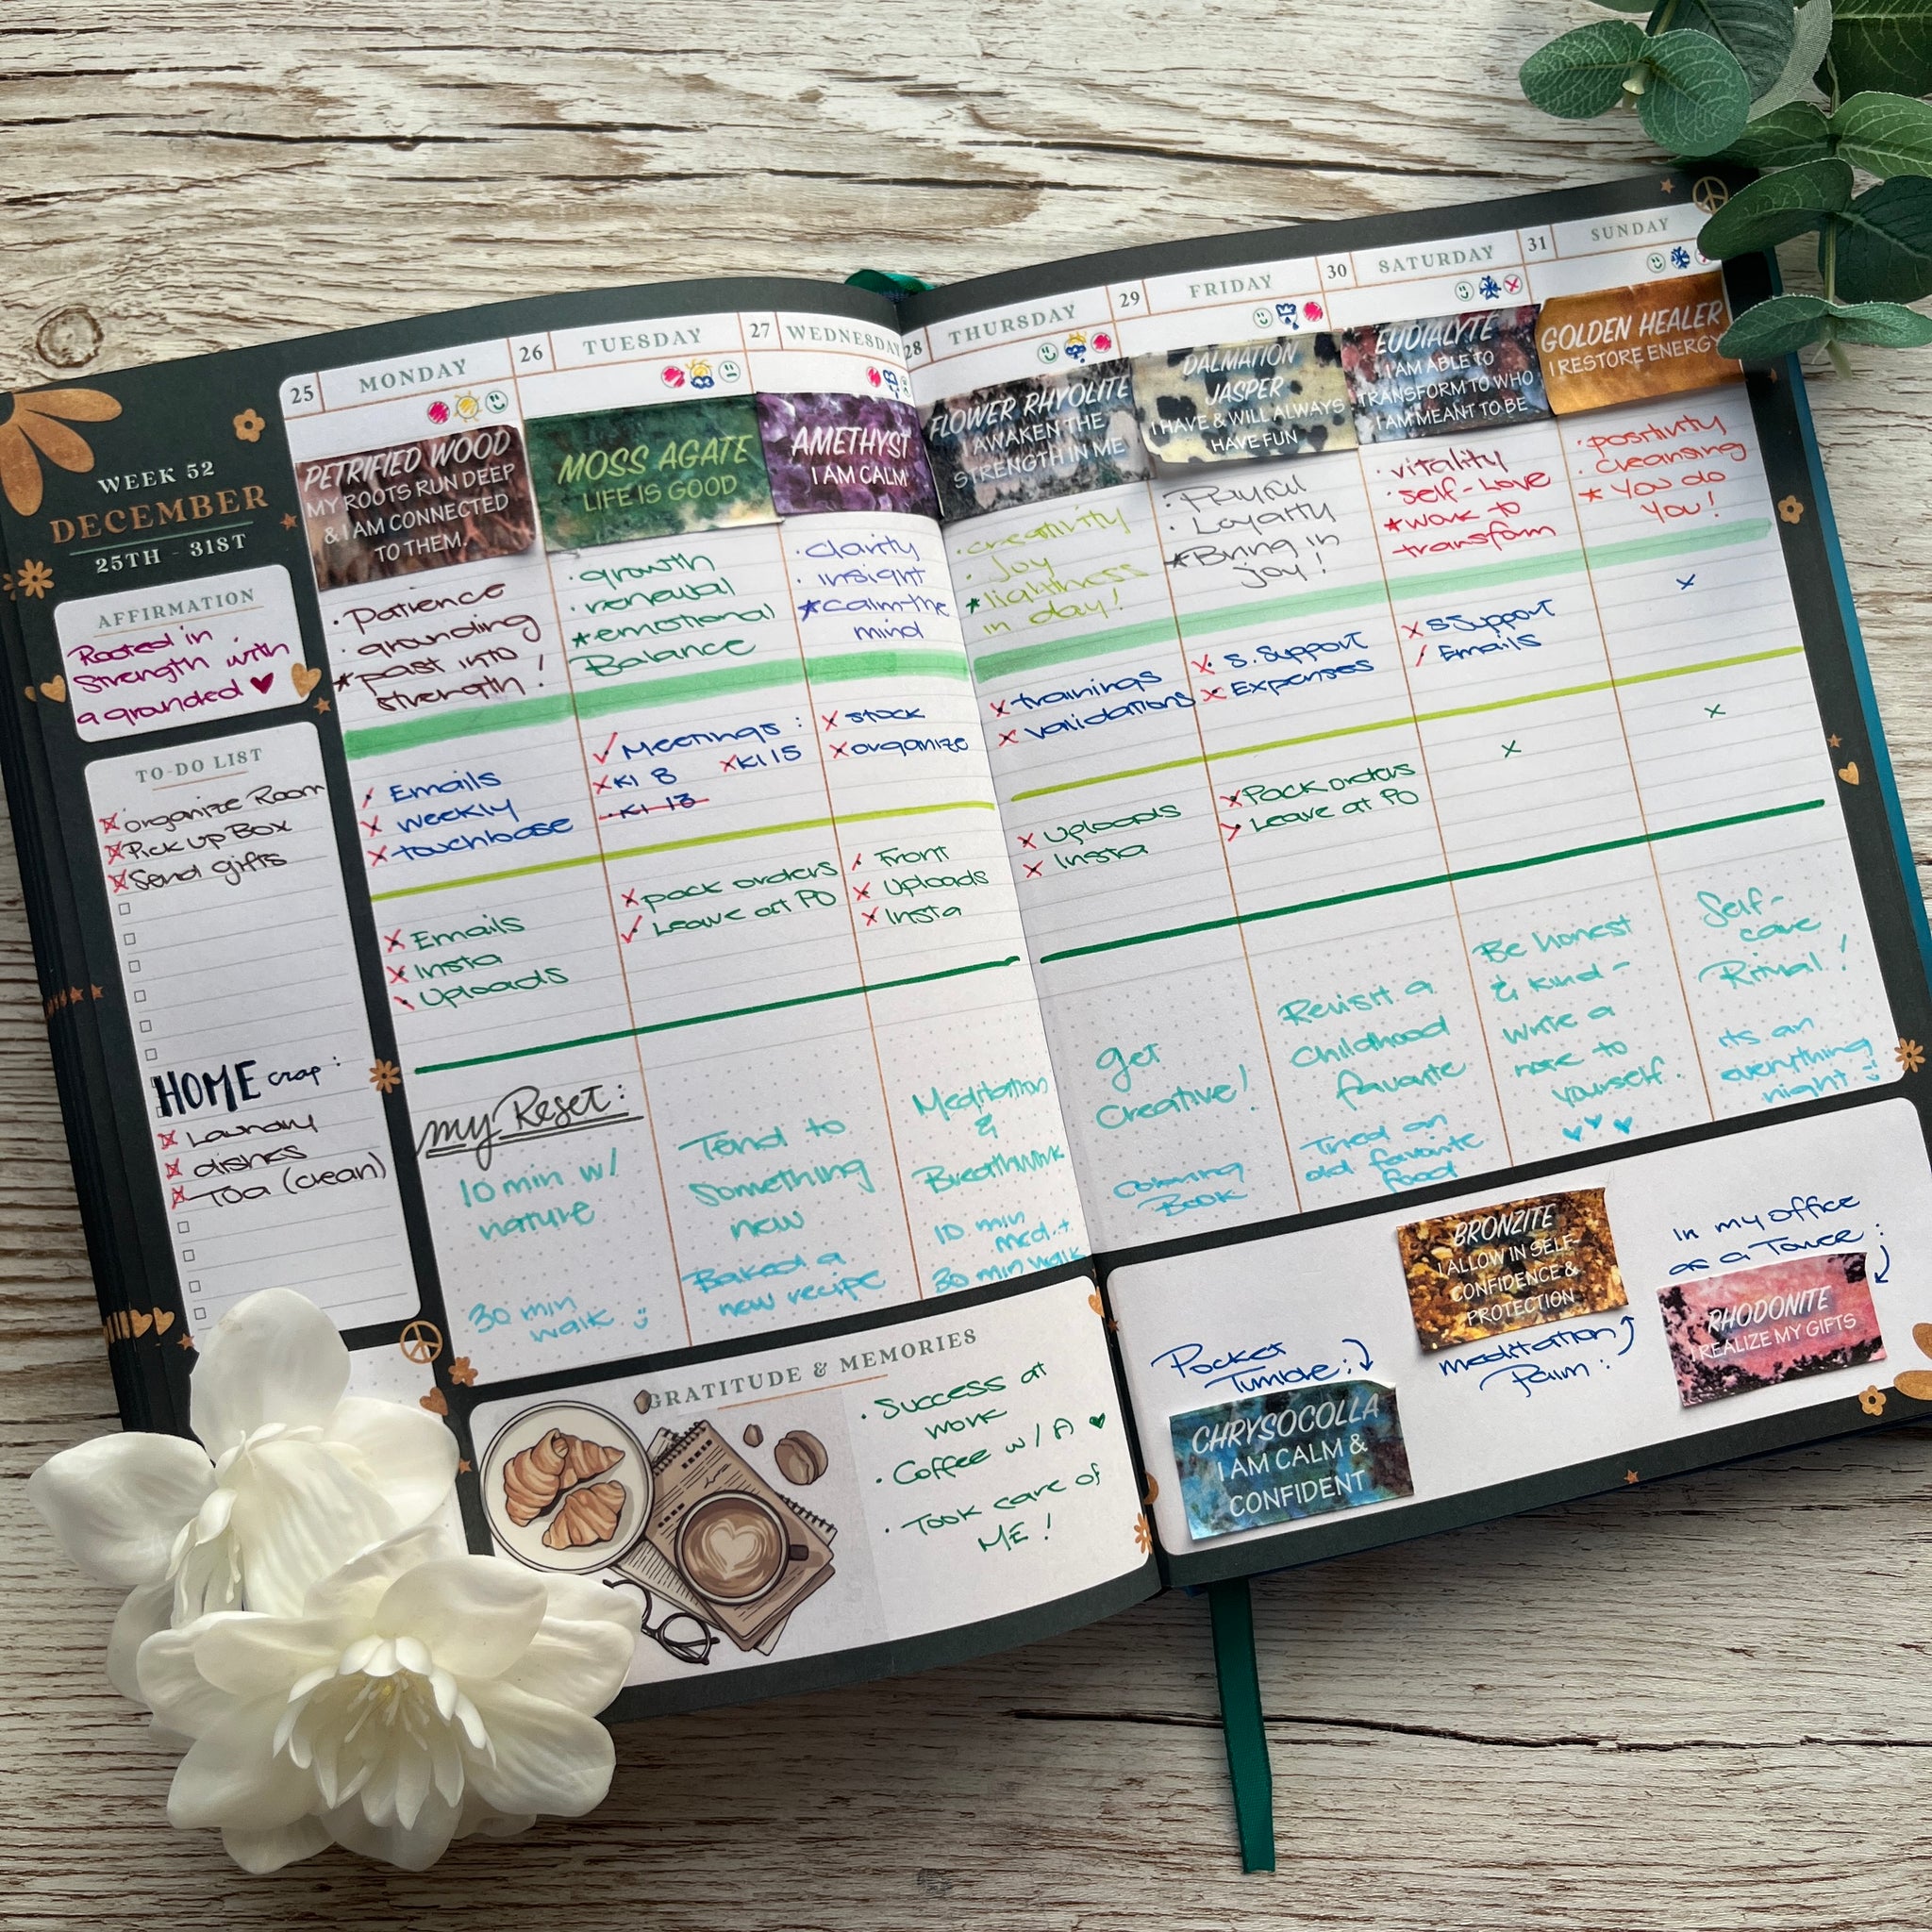 WEEK 52
DECEMBER
25TH - 31ST
AFFIRMATION
Rooted in
Strength with
a grounded
TO-DO LIST
organize Room
Pick up Box
Send gifts
HOME crap:
Laundry
dishes
TOa (clean)
25 MONDAY
PETRIFIED WOOD
MY ROOTS RUN DEEP
& I AM CONNECTED
TO THEM.
· Patience
· grounding
* past into
strength!
/ Emails
x weekly
x touchbase
x Emails
x Insta
\ Uploads
my Reset:
10 min w/
nature
30 min
walk
26 TUESDAY
MOSS AGATE
LIFE IS GOOD
· growth
· renewal
* emotional
Balance
✓ Meetings:
x KI 8 x KI 15
· KI 13
x pack orders
✓ Leave at PO
Tend to
something
new
Baked a
new recipe
27 WEDNESDAY
AMETHYST
I AM CALM
· clarity
· insight
* calm the
mind
x stock
x organize
/ Front
x Uploads
x Insta
Meditation
&
Breathwork
10 min
med. +
30 min walk
28 THURSDAY
FLOWER RHYOLITE
I AWAKEN THE
STRENGTH IN ME
· creativity
· Joy
* lightness
in day!
x trainings
x validations
x Uploads
x Insta
get
Creative!
Coloring
Book
29 FRIDAY
DALMATION
JASPER
I HAVE & WILL ALWAYS
HAVE FUN
· Playful
· Loyalty
* Bring in
joy!
x S. Support
x Expenses
x Pack orders
> Leave at PO
Revisit a
Childhood
favorite
Tried an
old favorite
food
30 SATURDAY
EUDIALYTE
I AM ABLE TO
TRANSFORM TO WHO
I AM MEANT TO BE
· vitality
· self-love
* work to
transform
x S Support
/ Emails
x
Be honest
& kind -
write a
note to
yourself.
31 SUNDAY
GOLDEN HEALER
I RESTORE ENERGY
· positivity
· cleansing
* You do
You!
x
x
Self-
care
Ritual!
its an
everything
night
GRATITUDE & MEMORIES
· Success at
work
· Coffee w/ A
· Took care of
ME!
Pocket
Tumble:
CHRYSOCOLLA
I AM CALM &
CONFIDENT
BRONZITE
I ALLOW IN SELF-
CONFIDENCE &
PROTECTION
meditation
Palm:
in my office
as a Tower:
RHODONITE
I REALIZE MY GIFTS